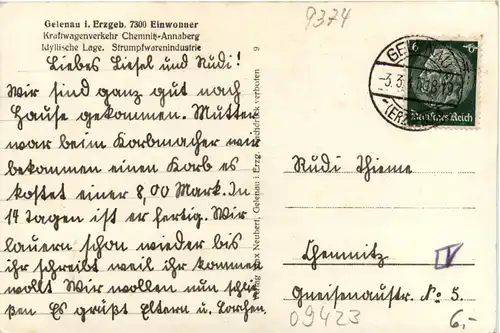 Gelenau i. Erzgeb. 7300 Einwohner
Kraftwagenverkehr Chemnitz-Annaberg
Idyllische Lage. Strumpfwarenindustrie
Liebes Liesel und Rudi!
Wir sind ganz gut nach
Hause gekommen. Mutter
war beim Korbmacher wir
bekommen einen Korb es
kostet einer 8,00 Mark. In
14 Tagen ist er fertig. Wir
lauern schon wieder bis
ihr schreibt weil ihr kommen
wollt Wir wollen nun schlie-
ßen Es grüßt Eltern u. Lorchen.
9
Nachdruck verboten
Verlag Max Neubert, Gelenau i. Erzg.
9374
GELENAU
(ERZ
6
6
Deutsches Reich
Rudi Thieme
Chemnitz
V
Gneisenaustr. No 5
09423
6,-